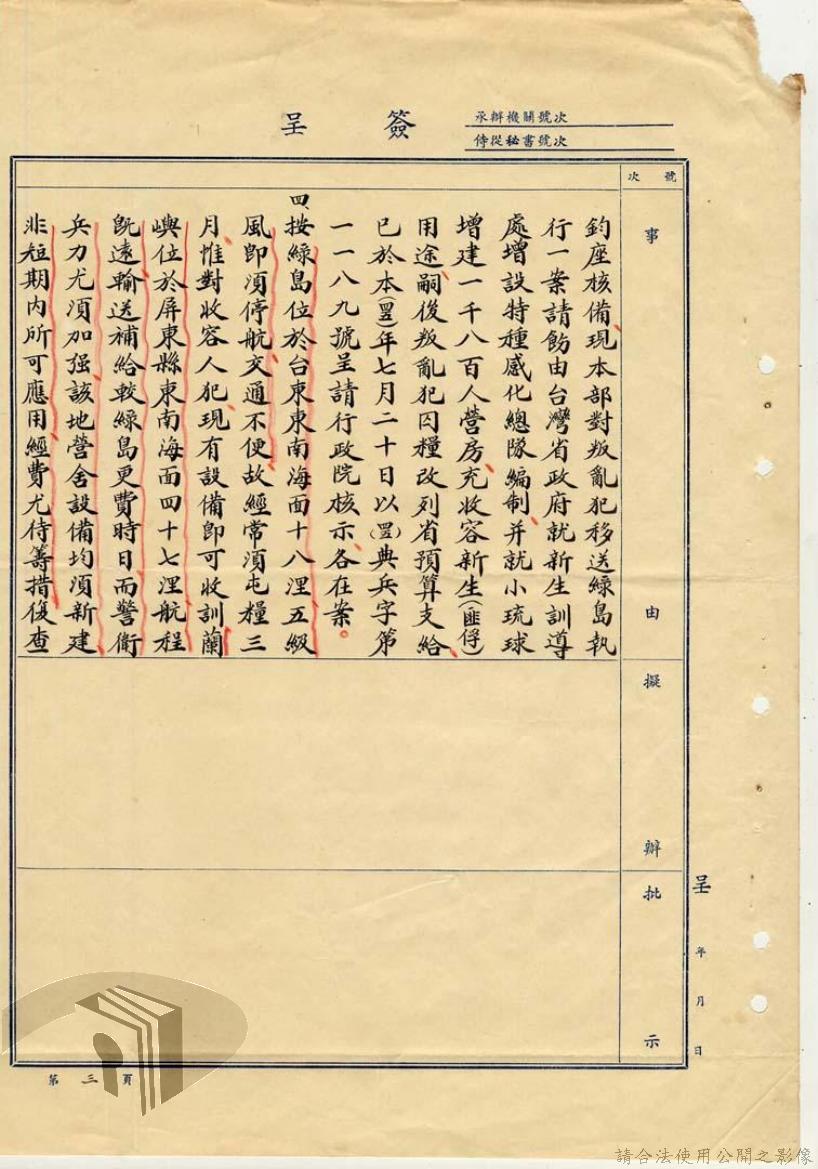 簽呈
承辦機關號次
侍從秘書號次
號次
事由
擬辦
批示
鈞座核備、現本部對叛亂犯移送綠島執
行一案請飭由台灣省政府就新生訓導
處增設特種感化總隊編制、并就小琉球
增建一千八百人營房、充收容新生(匪俘)
用途、嗣後叛亂犯囚糧改列省預算支給、
已於本(四五)年七月二十日以(四五)典兵字第
一一八九號呈請行政院核示、各在案。
四、按綠島位於台東東南海面十八浬五級
風即須停航、交通不便、故經常須屯糧三
月、惟對收容人犯、現有設備即可收訓、蘭
嶼位於屏東縣東南海面四十七浬、航程
既遠、輸送補給較綠島更費時日、而警衛
兵力尤須加强、該地營舍設備均須新建、
非短期內所可應用、經費尤待籌措、復查
呈 年 月 日
第三頁
請合法使用公開之影像